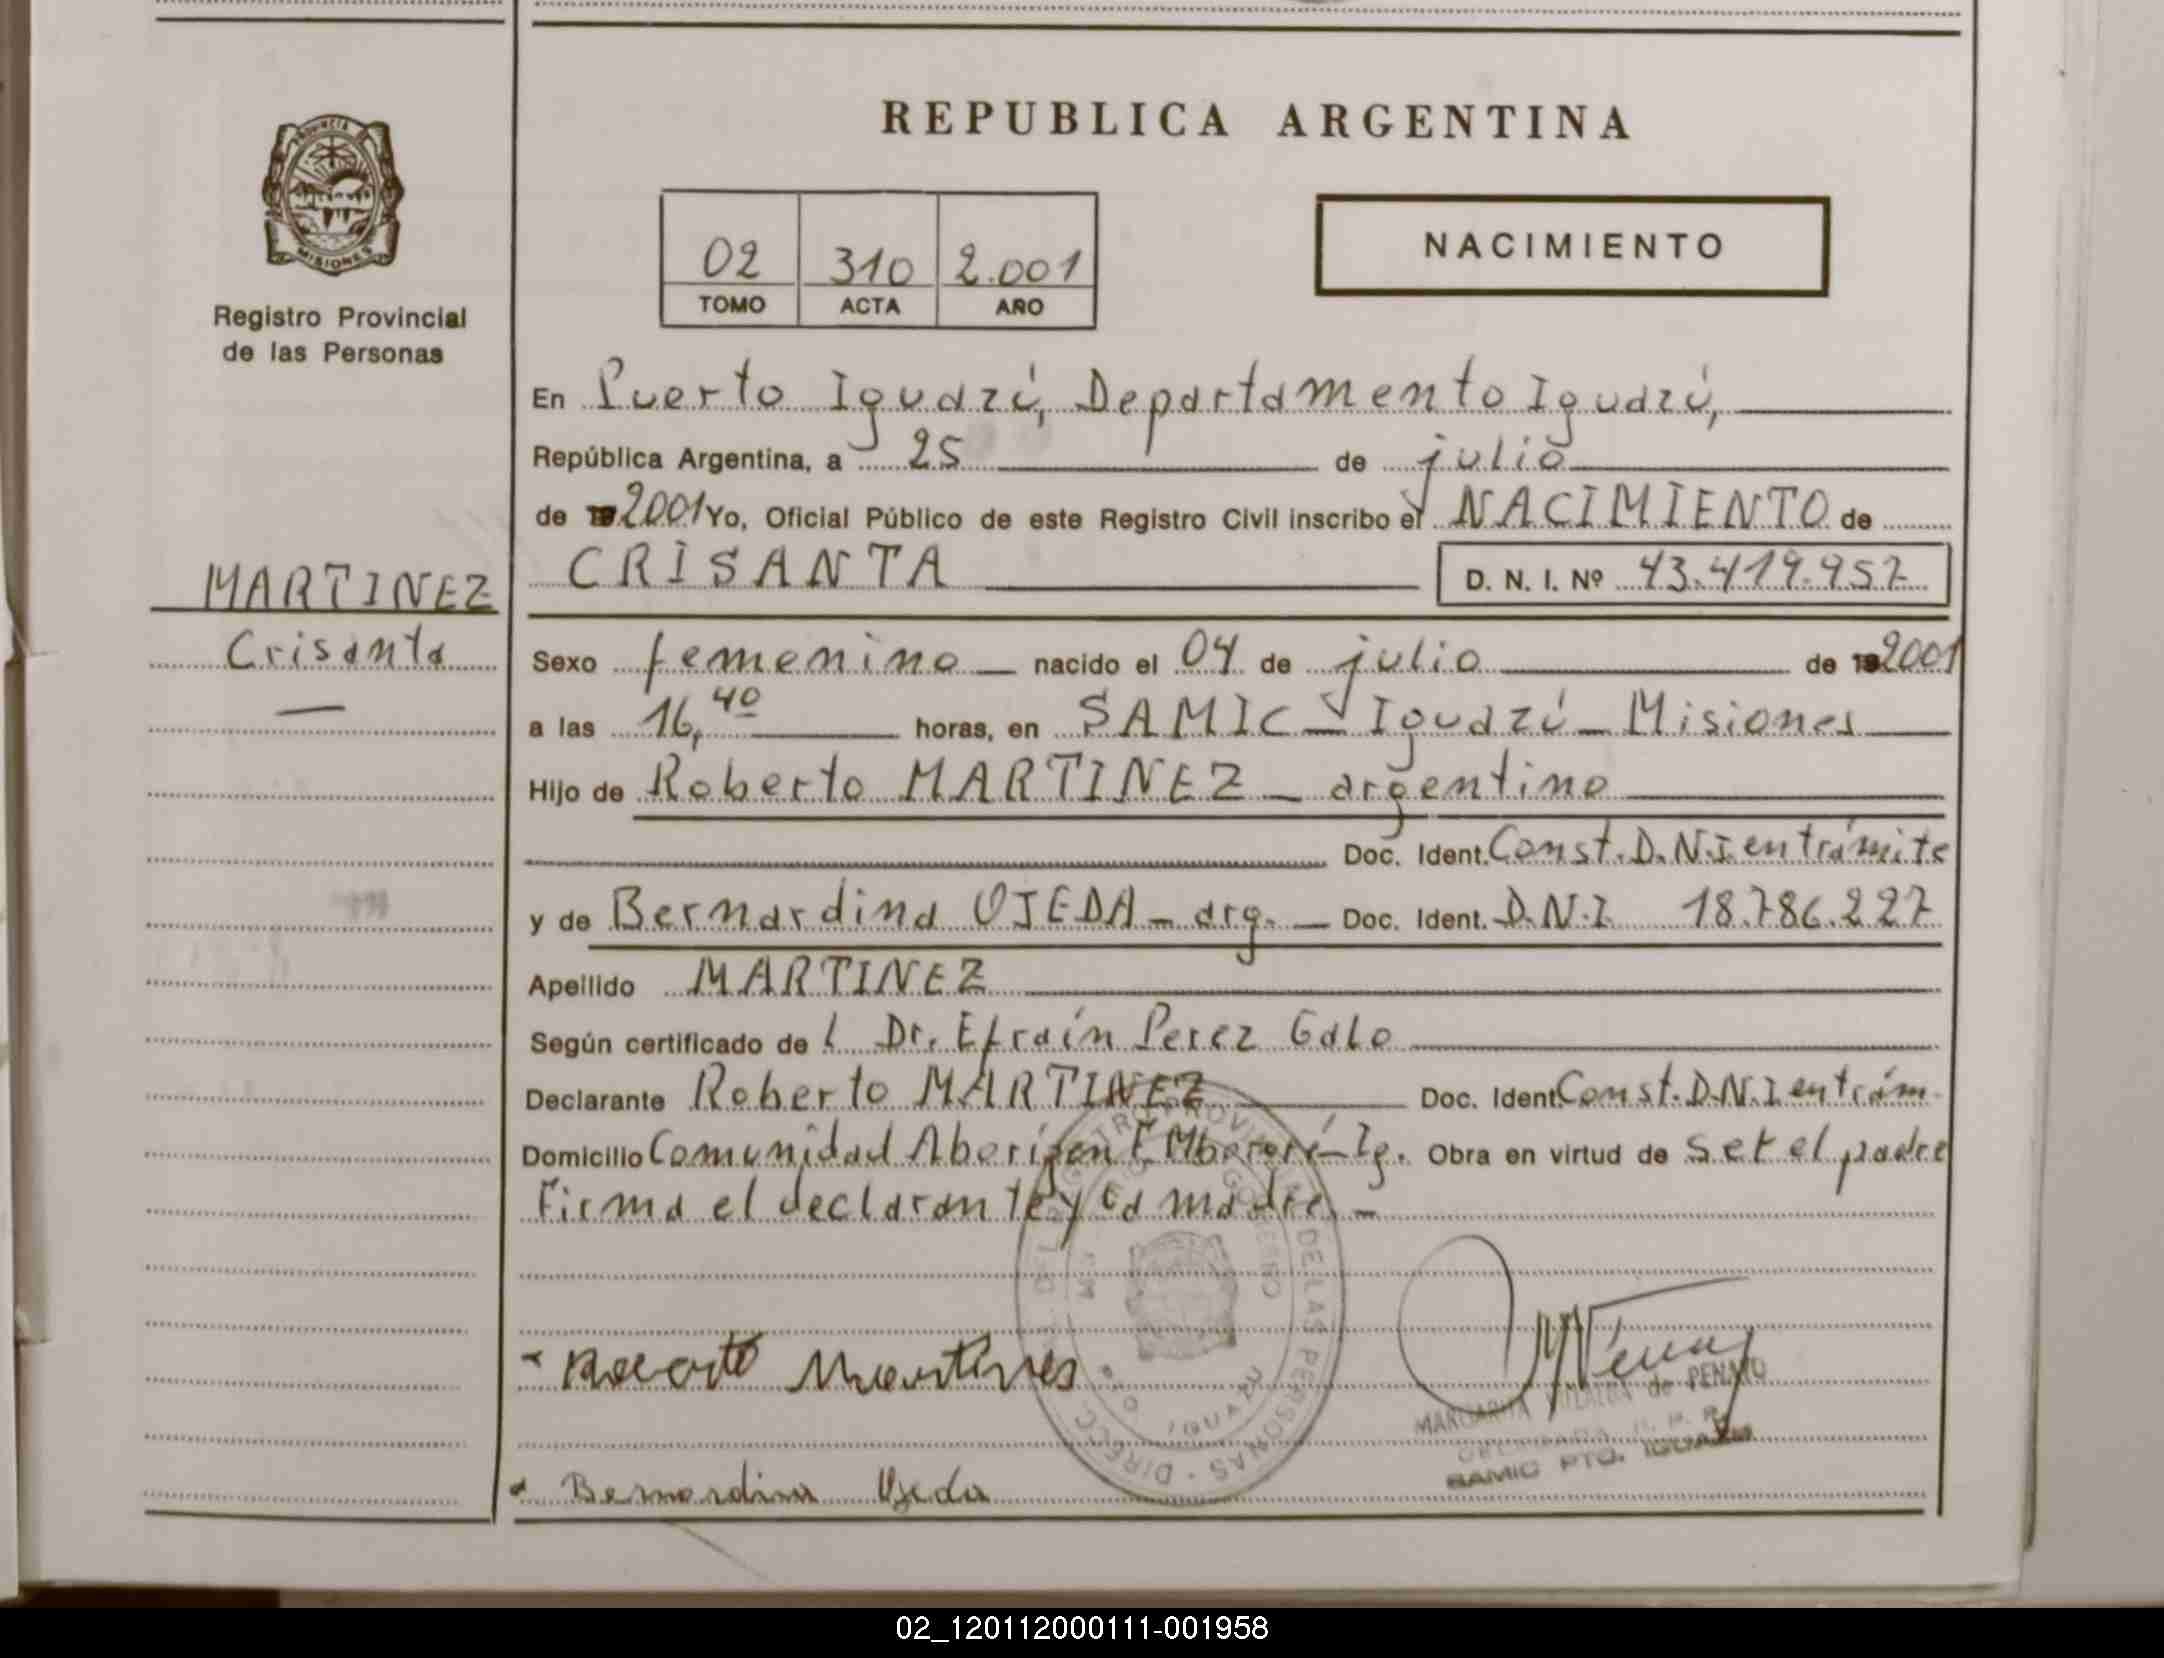 REPUBLICA ARGENTINA
PROVINCIA DE
MISIONES
Registro Provincial
de las Personas
02 310 2.001
TOMO ACTA AÑO
NACIMIENTO
En Puerto Iguazú, Departamento Iguazú,
República Argentina, a 25 de julio
de 19 2001 Yo, Oficial Público de este Registro Civil inscribo el NACIMIENTO de
CRISANTA D. N. I. Nº 43.419.957
MARTINEZ
Crisanta
Sexo femenino nacido el 04 de julio de 19 2001
a las 16,40 horas, en SAMIC – Iguazú – Misiones
Hijo de Roberto MARTINEZ – argentino
Doc. Ident. Const. D.N.I en trámite
y de Bernardina OJEDA – arg. – Doc. Ident. D.N.I 18.786.227
Apellido MARTINEZ
Según certificado de l Dr. Efraín Perez Galo
Declarante Roberto MARTINEZ Doc. Ident. Const. D.N.I en trám.
Domicilio Comunidad Aborigen F. Mbororé – Ig. Obra en virtud de ser el padre
Firma el declarante y la madre. –
Roberto Martines
MARGARITA VILLALBA de PENAYO
SAMIC PTO. IGUAZU
Bernardina Ojeda
REGISTRO PROVINCIAL DE LAS PERSONAS - DIRECC
GOBIERNO
PTO. IGUAZU
02_120112000111-001958